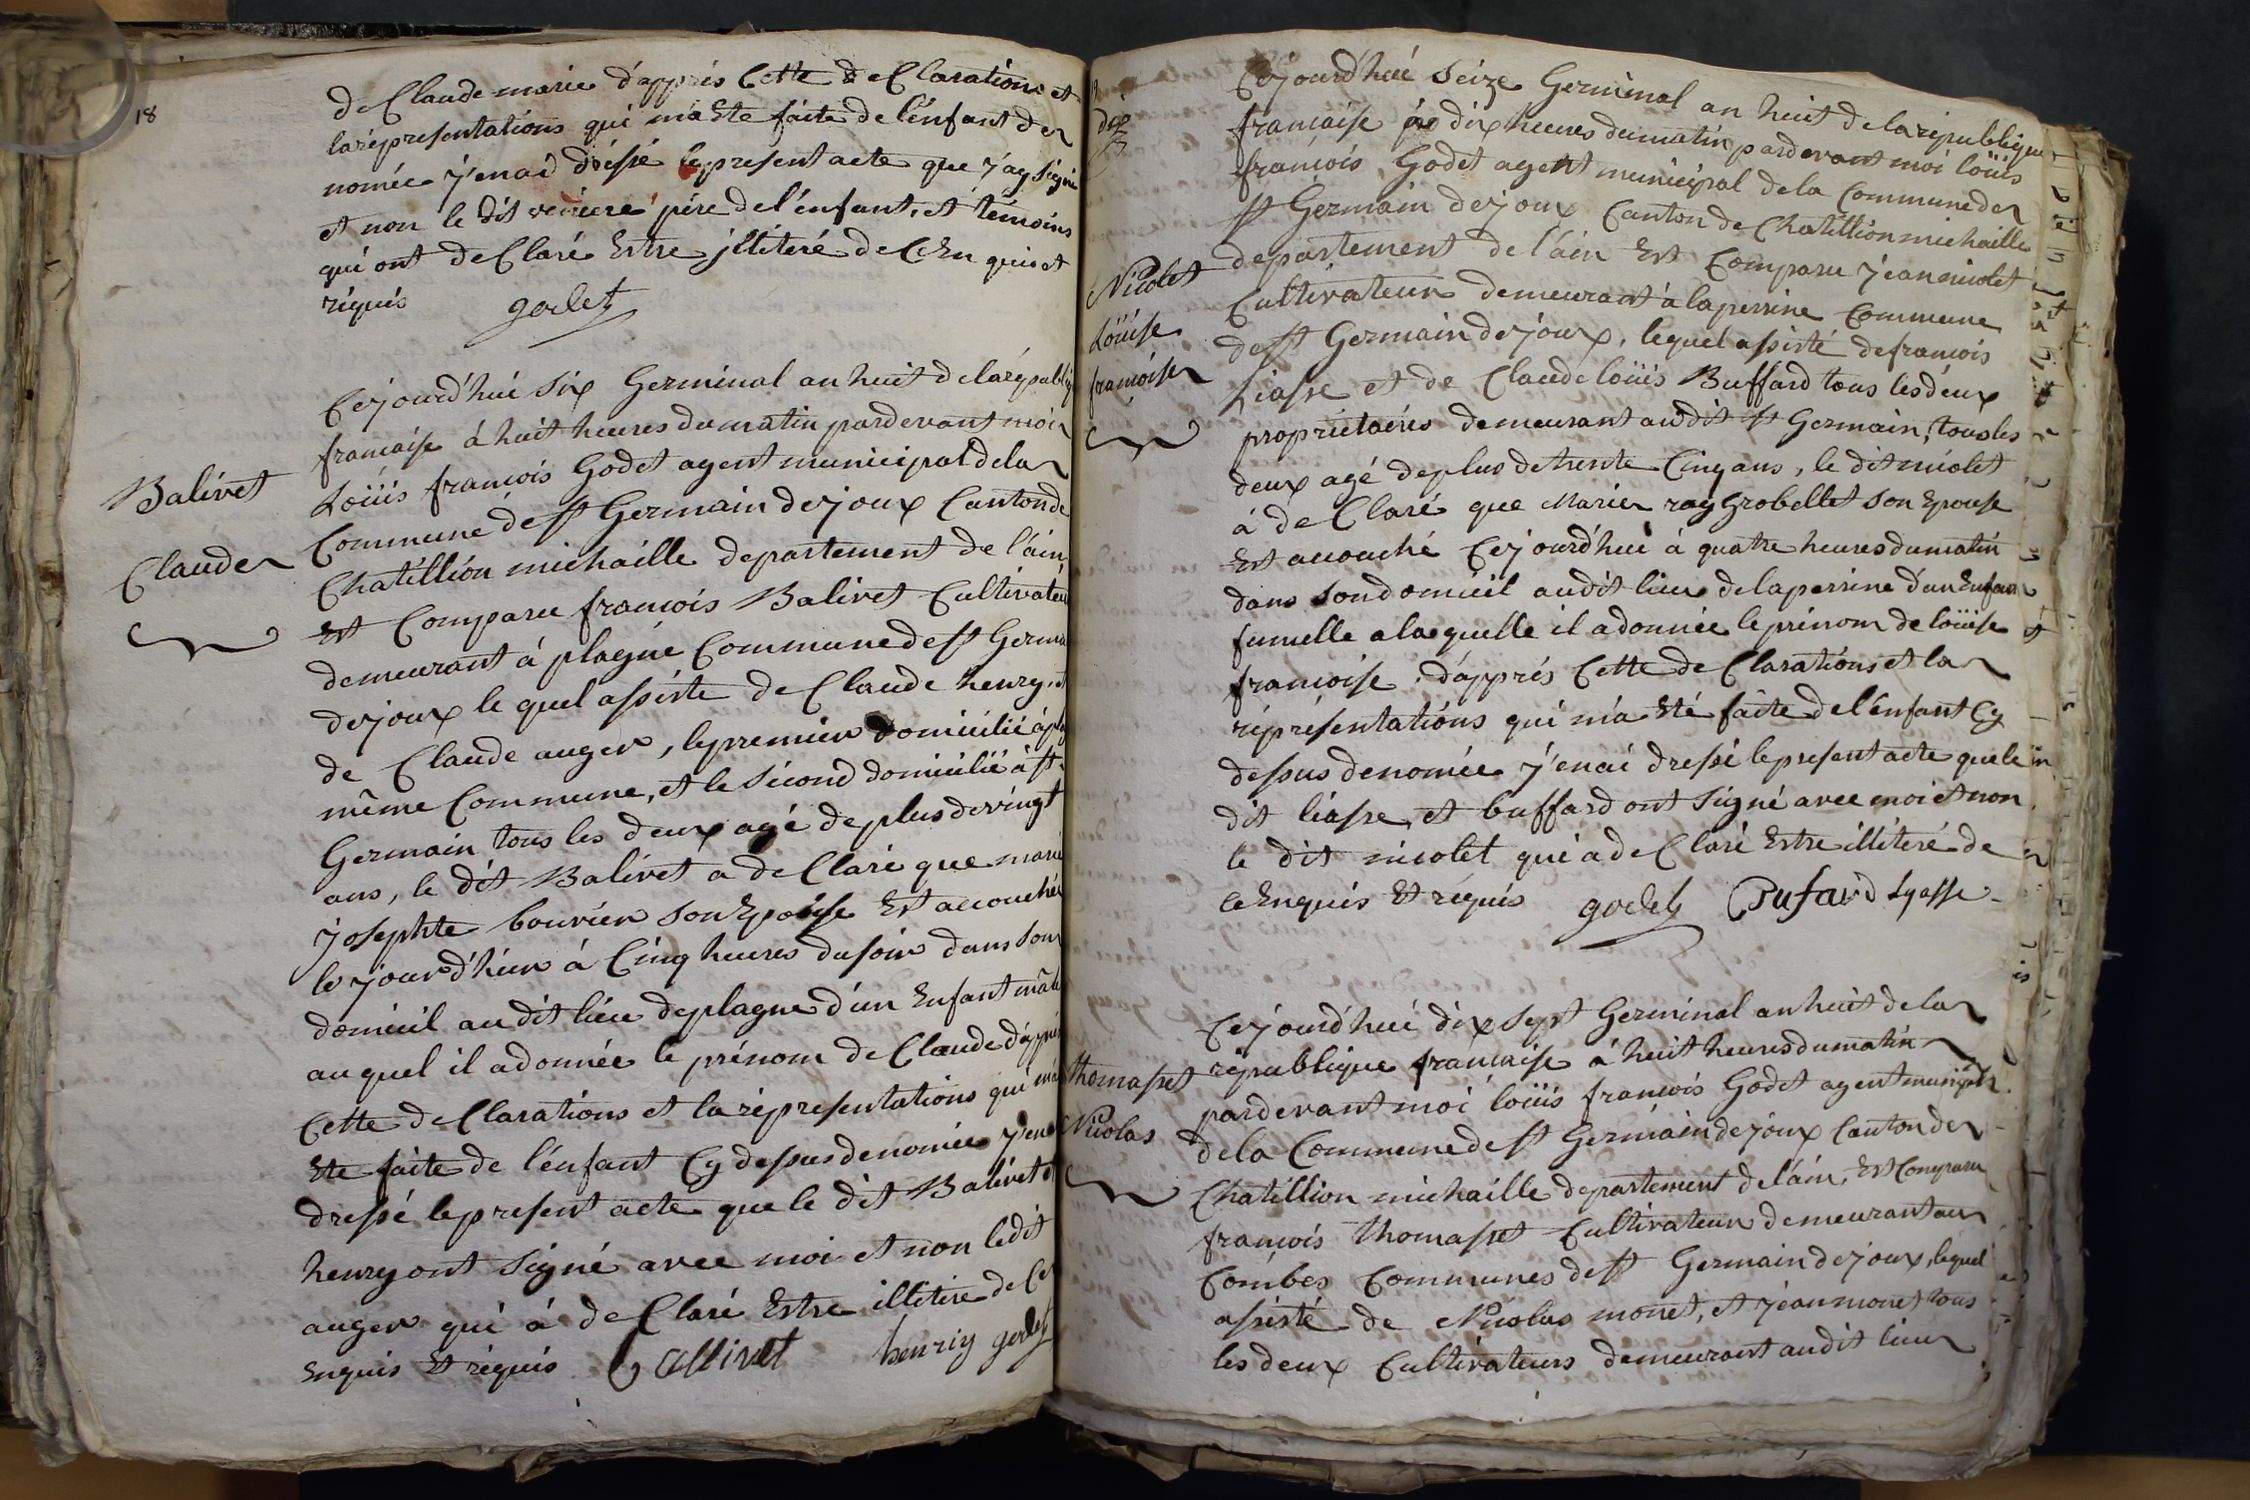 18
de Claude marie d'apprés Cette de Clarations et
la répresentations qui m'a Ete faite de l'énfant de
nomée j'en ai dréssé le present acte que j'ay signé
et non le dit père de l'énfant, et témoins
qui ont de Claré Estre jlliteré de Ce En quis et
réquis godet
Balivet
Claude
Cejourd'hui six Germinal an huit de la républiq
francaise à huit heures du matin pardevant moi
Loüis francois Godet agent municipal de la
Commune de st Germain de joux Canton de
Chatillion michaille departement de l'ain
Est Comparu francois Balivet Cultivateu
demeurant à plagne Commune de st Germa
de joux le quel assisté de Claude henry, et
de Claude auger, le premier domicilié à plag
même Commune, et le sécond domicilié à st.
Germain tous les deux agé de plus de vingt
ans, le dit Balivet a de Claré que marie
josephte bouvier son Epouse Est accouchée
le jour d'hier à Cinq heures du soir dans son
domicil au dit lieu de plagne d'un Enfant mâle
au quel il a donnée le prénom de Claude d'apprés
Cette de Clarations et la répresentations qui m'a
Ete faite de l'énfant Cy dessus denomée j'en ai
dressé le present acte que le dit Balivet et
henry ont signé avec moi et non le dit
auger qui à de Claré Estre illitéré de Ce
Enquis Et réquis Ballivet henriy godet
Nicolet
Loüise
francoise
Cejourd'hui seize Germinal an huit de la république
francaise à dix heures du matin pardevant moi loüis
francois Godet agent municipal de la Commune de
st Germain de joux Canton de Chatillion michaille
departement de l'ain Est Comparu jean nicolet
Cultivateur demeurant à la perrine Commune
de st Germain de joux, lequel assisté de francois
Liasse et de Claude loüis Buffard tous les deux
propriétairés demeurant au dit st Germain, tous les
deux agé de plus de trente Cinq ans, le dit nicolet
à de Claré que Marie ray Grobellet son Epouse
Est accouché Cejourd'hui à quatre heures du matin
dans son domicil au dit lieu de la perrine d'un Enfan
fumelle a la quelle il a donnée le prénom de loüise
francoise, d'apprés Cette de Clarations et la
réprésentations qui m'a Eté faite de l'énfant Cy
dessus denomée j'en ai dressé le present acte que le
dit liasse, et buffard ont signé avec moi et non
le dit nicolet qui a de Claré Estre illiteré de
ce Enquis Et réquis godet Bufard Lyasse
thomasset
Nicolas
Cejourd'hui dix sept Germinal an huit de la
république francaise à huit heures du matin
pardevant moi loüis francois Godet agent municipal
de la Commune de st Germain de joux Canton de
Chatillion michaille departement de l'ain, Est Comparu
francois thomasset Cultivateur demeurant au
Combes Communes de st Germain de joux, lequel
assisté de Nicolas monet, et jean monet tous
les deux Cultivateurs demeurant audit lieu